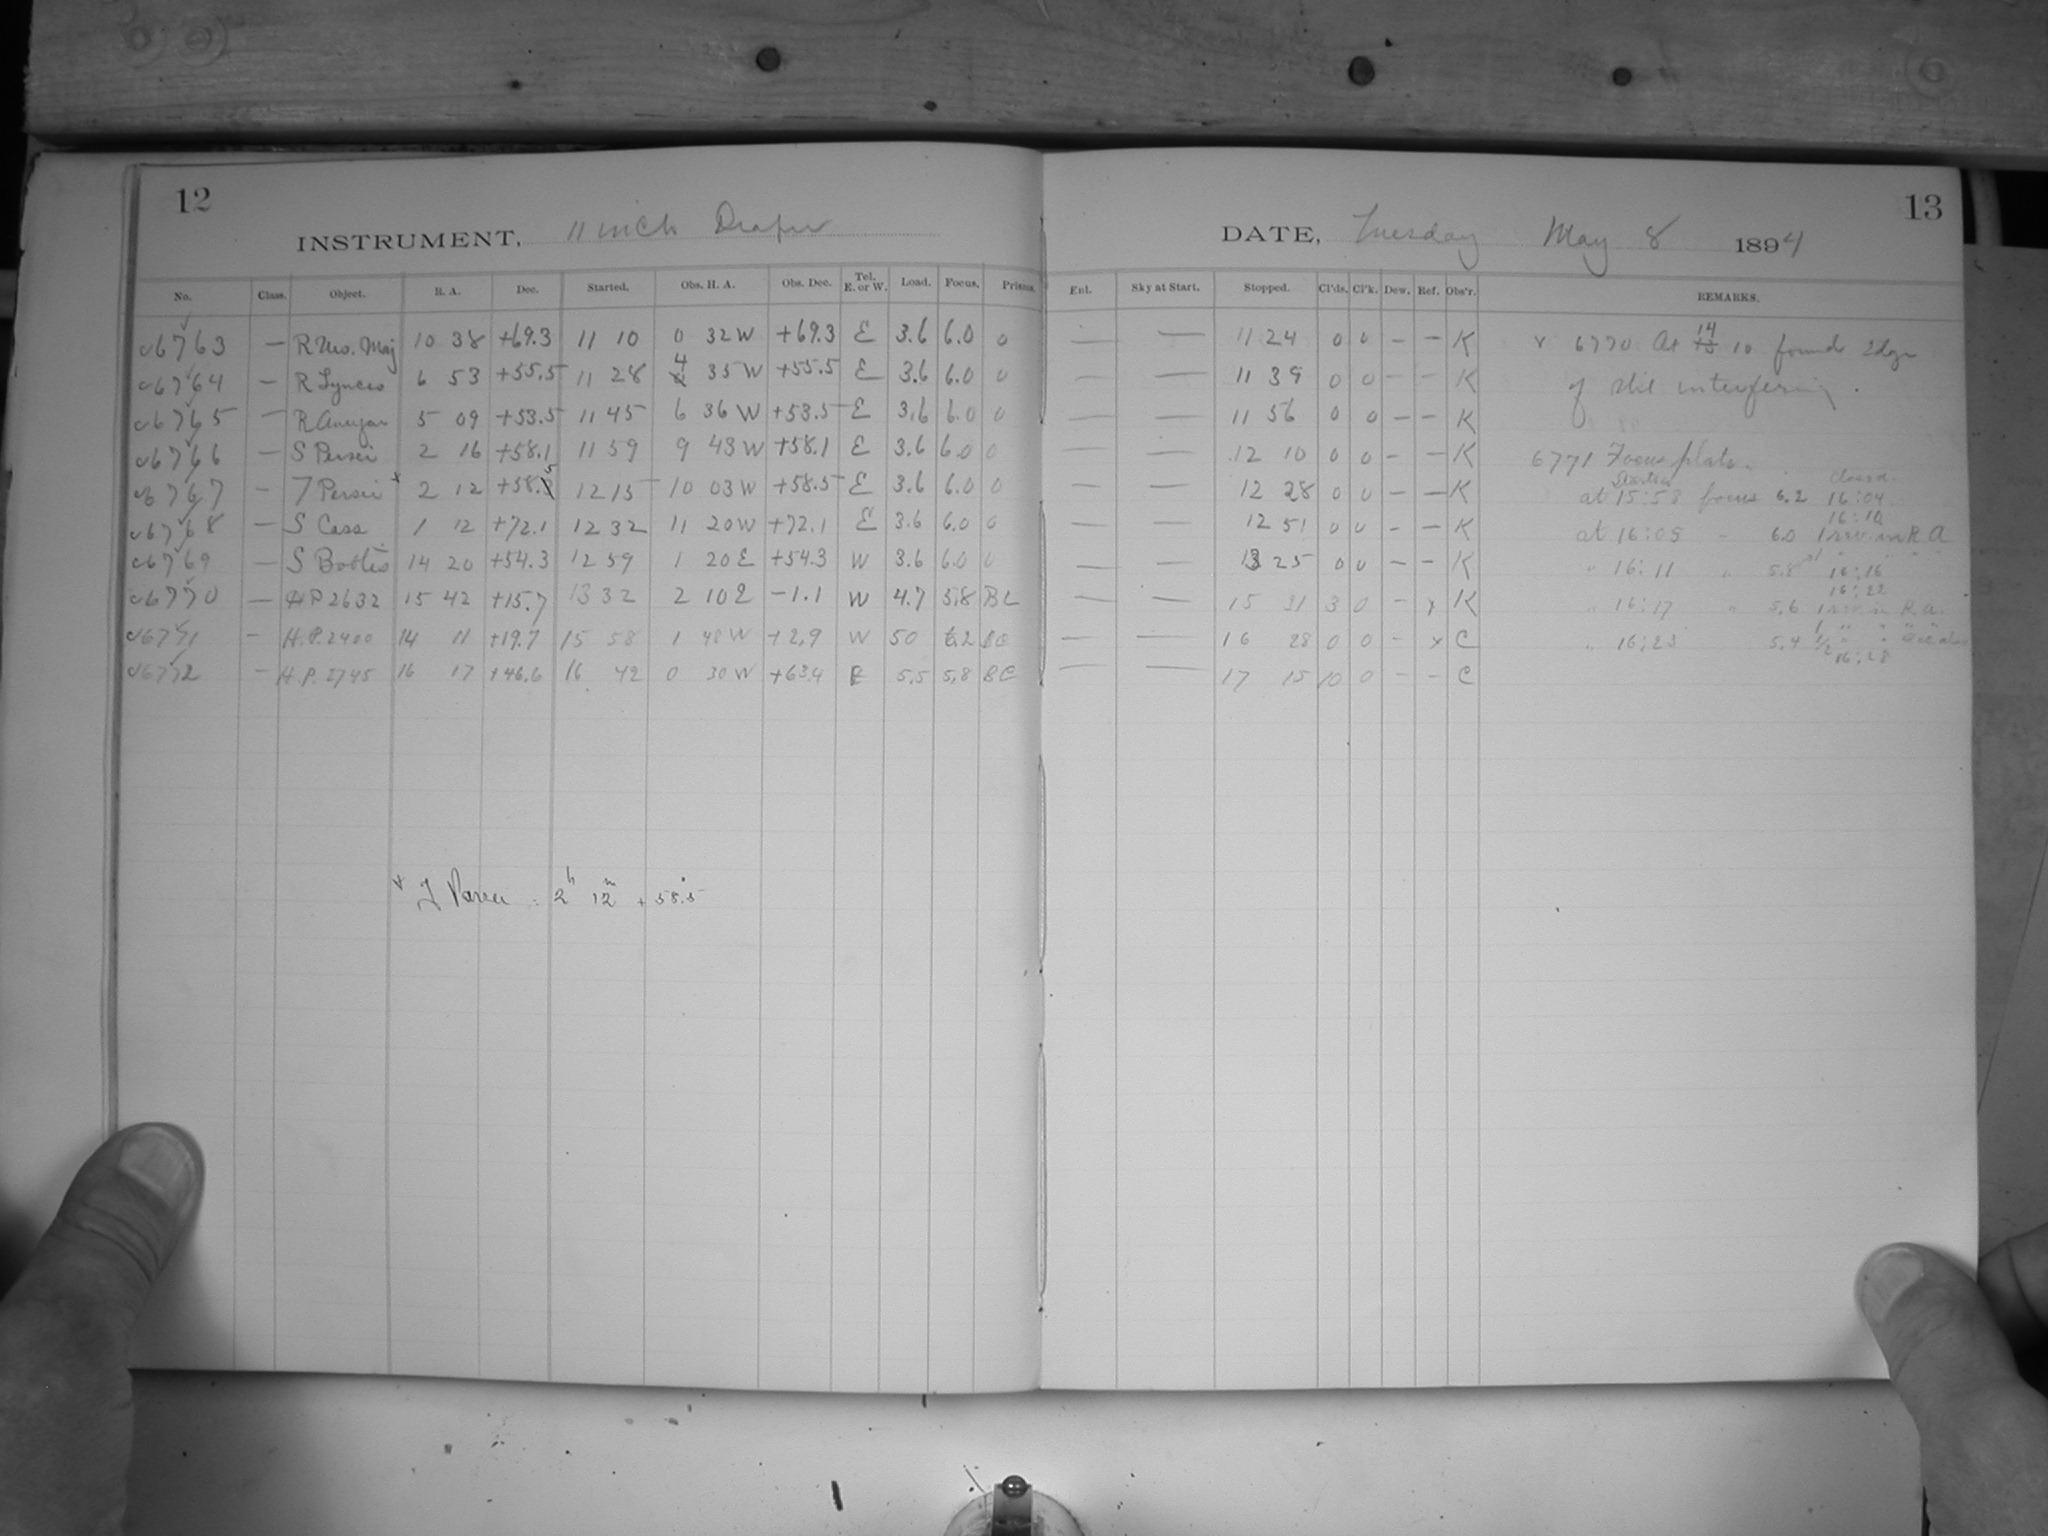 12
INSTRUMENT, 11 inch Draper
No. Class. Object. R. A. Dec. Started. Obs. H. A. Obs. Dec. Tel. E. or W. Load. Focus. Prisms.
c6763 — R Urs. Maj 10 38 +69.3 11 10 0 32 W +69.3 E 3.6 6.0 0
c6764 — R Lyncis 6 53 +55.5 11 28 4 35 W +55.5 E 3.6 6.0 0
c6765 — R Aurigae 5 09 +53.5 11 45 6 36 W +53.5 E 3.6 6.0 0
c6766 — S Persei 2 16 +58.1 11 59 9 43 W +58.1 E 3.6 6.0 0
c6767 — T Persei x 2 12 +58.5 12 15 10 03 W +58.5 E 3.6 6.0 0
c6768 — S Cass 1 12 +72.1 12 32 11 20 W +72.1 E 3.6 6.0 0
c6769 — S Bootis 14 20 +54.3 12 59 1 20 E +54.3 W 3.6 6.0 0
c6770 — H.P. 2632 15 42 +15.7 13 32 2 10 E −1.1 W 4.7 5.8 BC
c6771 — H.P. 2400 14 11 +19.7 15 58 1 48 W +2.9 W 50 6.2 BC
c6772 — H.P. 2745 16 17 +46.6 16 42 0 30 W +63.4 E 5.5 5.8 BC
x T Persei = 2h 12m + 58.5°
13
DATE, Tuesday May 8 1894
Ent. Sky at Start. Stopped. Cl'ds. Cl'k. Dew. Ref. Obs'r. REMARKS.
— — 11 24 0 0 – – K x 6770 At 14 10 found edge
— — 11 39 0 0 – – K of slit interfering.
— — 11 56 0 0 – – K
— — 12 10 0 0 – – K 6771 Focus plate.
Started closed
— — 12 28 0 0 – – K at 15:58 focus 6.2 16:04
16:10
— — 12 51 0 0 – – K at 16:05 " 6.0 1 rev. in R.A
— — 13 25 0 0 – – K " 16:11 " 5.8 16:16
16:22
— — 15 31 3 0 – x K " 16:17 " 5.6 1 rev. in R.A.
— — 16 28 0 0 – x C " 16:23 5.4
16:28
— — 17 15 10 0 – – C